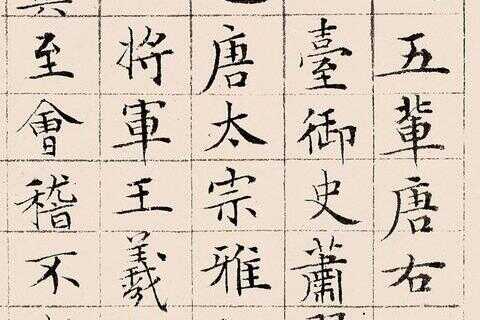 五輩唐右
臺御史蕭
唐太宗雅
將軍王羲
至會稽不